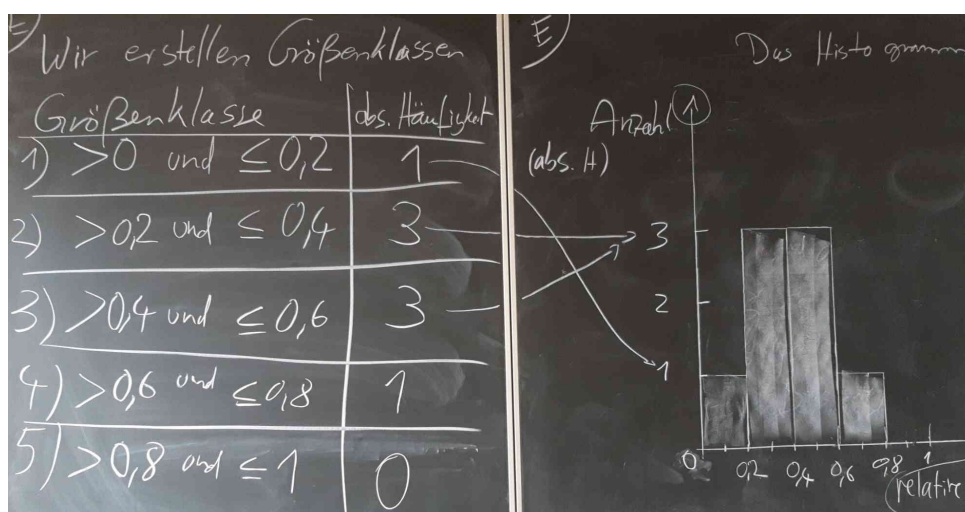 E)
Wir erstellen Größenklassen
Größenklasse abs. Häufigkeit
1) >0 und ≤0,2 1
2) >0,2 und ≤ 0,4 3
3) >0,4 und ≤0,6 3
4) >0,6 und ≤0,8 1
5) >0,8 und ≤1 0
E)
Das Histogramm
Anzahl
(abs. H)
3
2
1
0 0,2 0,4 0,6 0,8 1
(relative